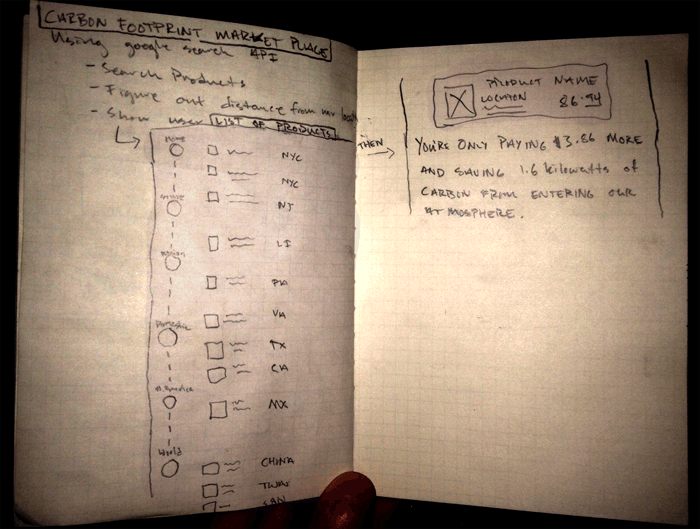 CARBON FOOTPRINT MARKET PLACE
Using google search API
- Search Products
- Figure out distance from
- Show user LIST OF PRODUCTS
Home
NYC
NYC
NJ
LI
Region
PA
Domestic
VA
TX
CA
N. America
MX
World
CHINA
THEN
PRODUCT NAME
LOCATION 86.94
YOU'RE ONLY PAYING $3.86 MORE
AND SAVING 1.6 kilowatts of
CARBON FROM ENTERING OUR
ATMOSPHERE.